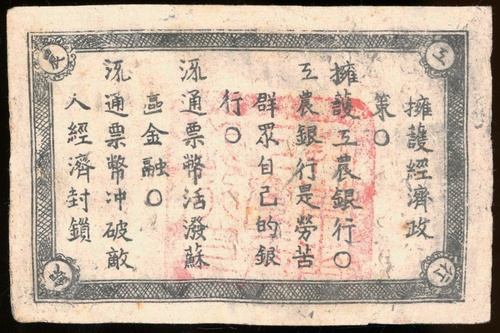 工
農
擁護經濟政
策〇
擁護工農銀行〇
工農銀行是勞苦
群眾自己的銀
行〇
流通票幣活潑蘇
區金融〇
流通票幣冲破敵
人經濟封鎖
行